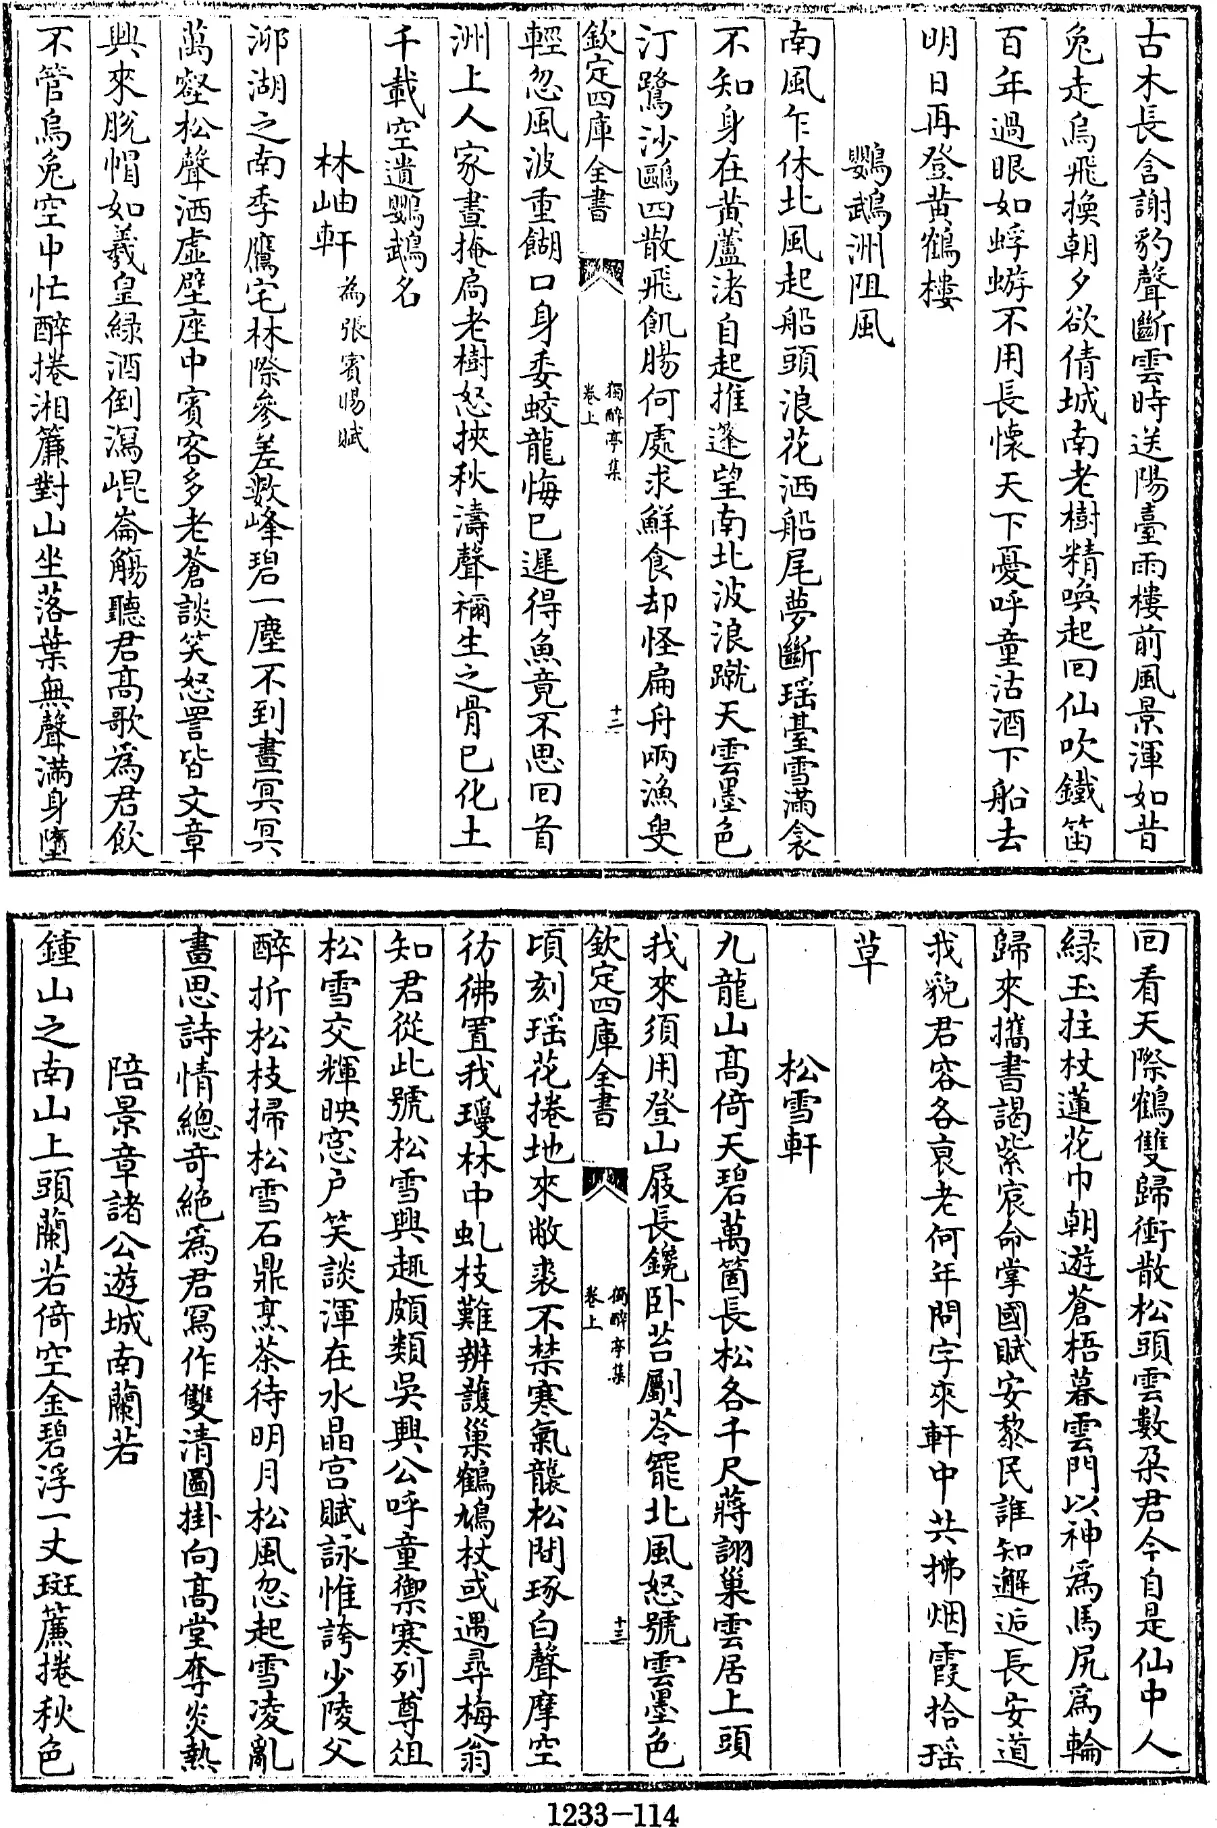 古木長含謝豹聲斷雲時送陽臺雨樓前風景渾如昔
兔走烏飛換朝夕欲倩城南老樹精喚起回仙吹鐵笛
百年過眼如蜉蝣不用長懷天下憂呼童沽酒下船去
明日再登黄鶴樓
鸚鵡洲阻風
南風乍休北風起船頭浪花洒船尾夢斷瑶臺雪滿衾
不知身在黄蘆渚自起推篷望南北波浪蹴天雲墨色
汀鷺沙鷗四散飛飢腸何處求鮮食却怪扁舟兩漁叟
欽定四庫全書
獨醉亭集
卷上
十二
輕忽風波重餬口身委蛟龍悔已遲得魚竟不思回首
洲上人家晝掩扃老樹怒挾秋濤聲禰生之骨已化土
千載空遺鸚鵡名
林岫軒為張賓暘賦
泖湖之南季鷹宅林際參差數峰碧一塵不到晝冥冥
萬壑松聲洒虚壁座中賓客多老蒼談笑怒罵皆文章
興來脱帽如羲皇緑酒倒瀉崐崙觴聽君髙歌為君飲
不管烏兔空中忙醉捲湘簾對山坐落葉無聲滿身墮
回看天際鶴雙歸衝散松頭雲數朶君今自是仙中人
緑玉拄杖蓮花巾朝遊蒼梧暮雲門以神為馬尻為輪
歸來攜書謁紫宸命掌國賦安黎民誰知邂逅長安道
我貌君容各衰老何年問字來軒中共拂烟霞拾瑶
草
松雪軒
九龍山髙倚天碧萬箇長松各千尺蔣詡巢雲居上頭
我來須用登山屐長鑱卧苔劚苓罷北風怒號雲墨色
欽定四庫全書
獨醉亭集
卷上
十三
頃刻瑶花捲地來敝裘不禁寒氣襲松間琢白聲摩空
彷彿置我瓊林中虬枝難辨護巢鶴鳩杖或遇尋梅翁
知君從此號松雪興趣頗類吳興公呼童禦寒列尊俎
松雪交輝映窓户笑談渾在水晶宫賦詠惟誇少陵父
醉折松枝掃松雪石鼎烹茶待明月松風忽起雪凌亂
畫思詩情總竒絶為君寫作雙清圖掛向髙堂奪炎熱
陪景章諸公遊城南蘭若
鍾山之南山上頭蘭若倚空金碧浮一丈斑簾捲秋色
1233-114